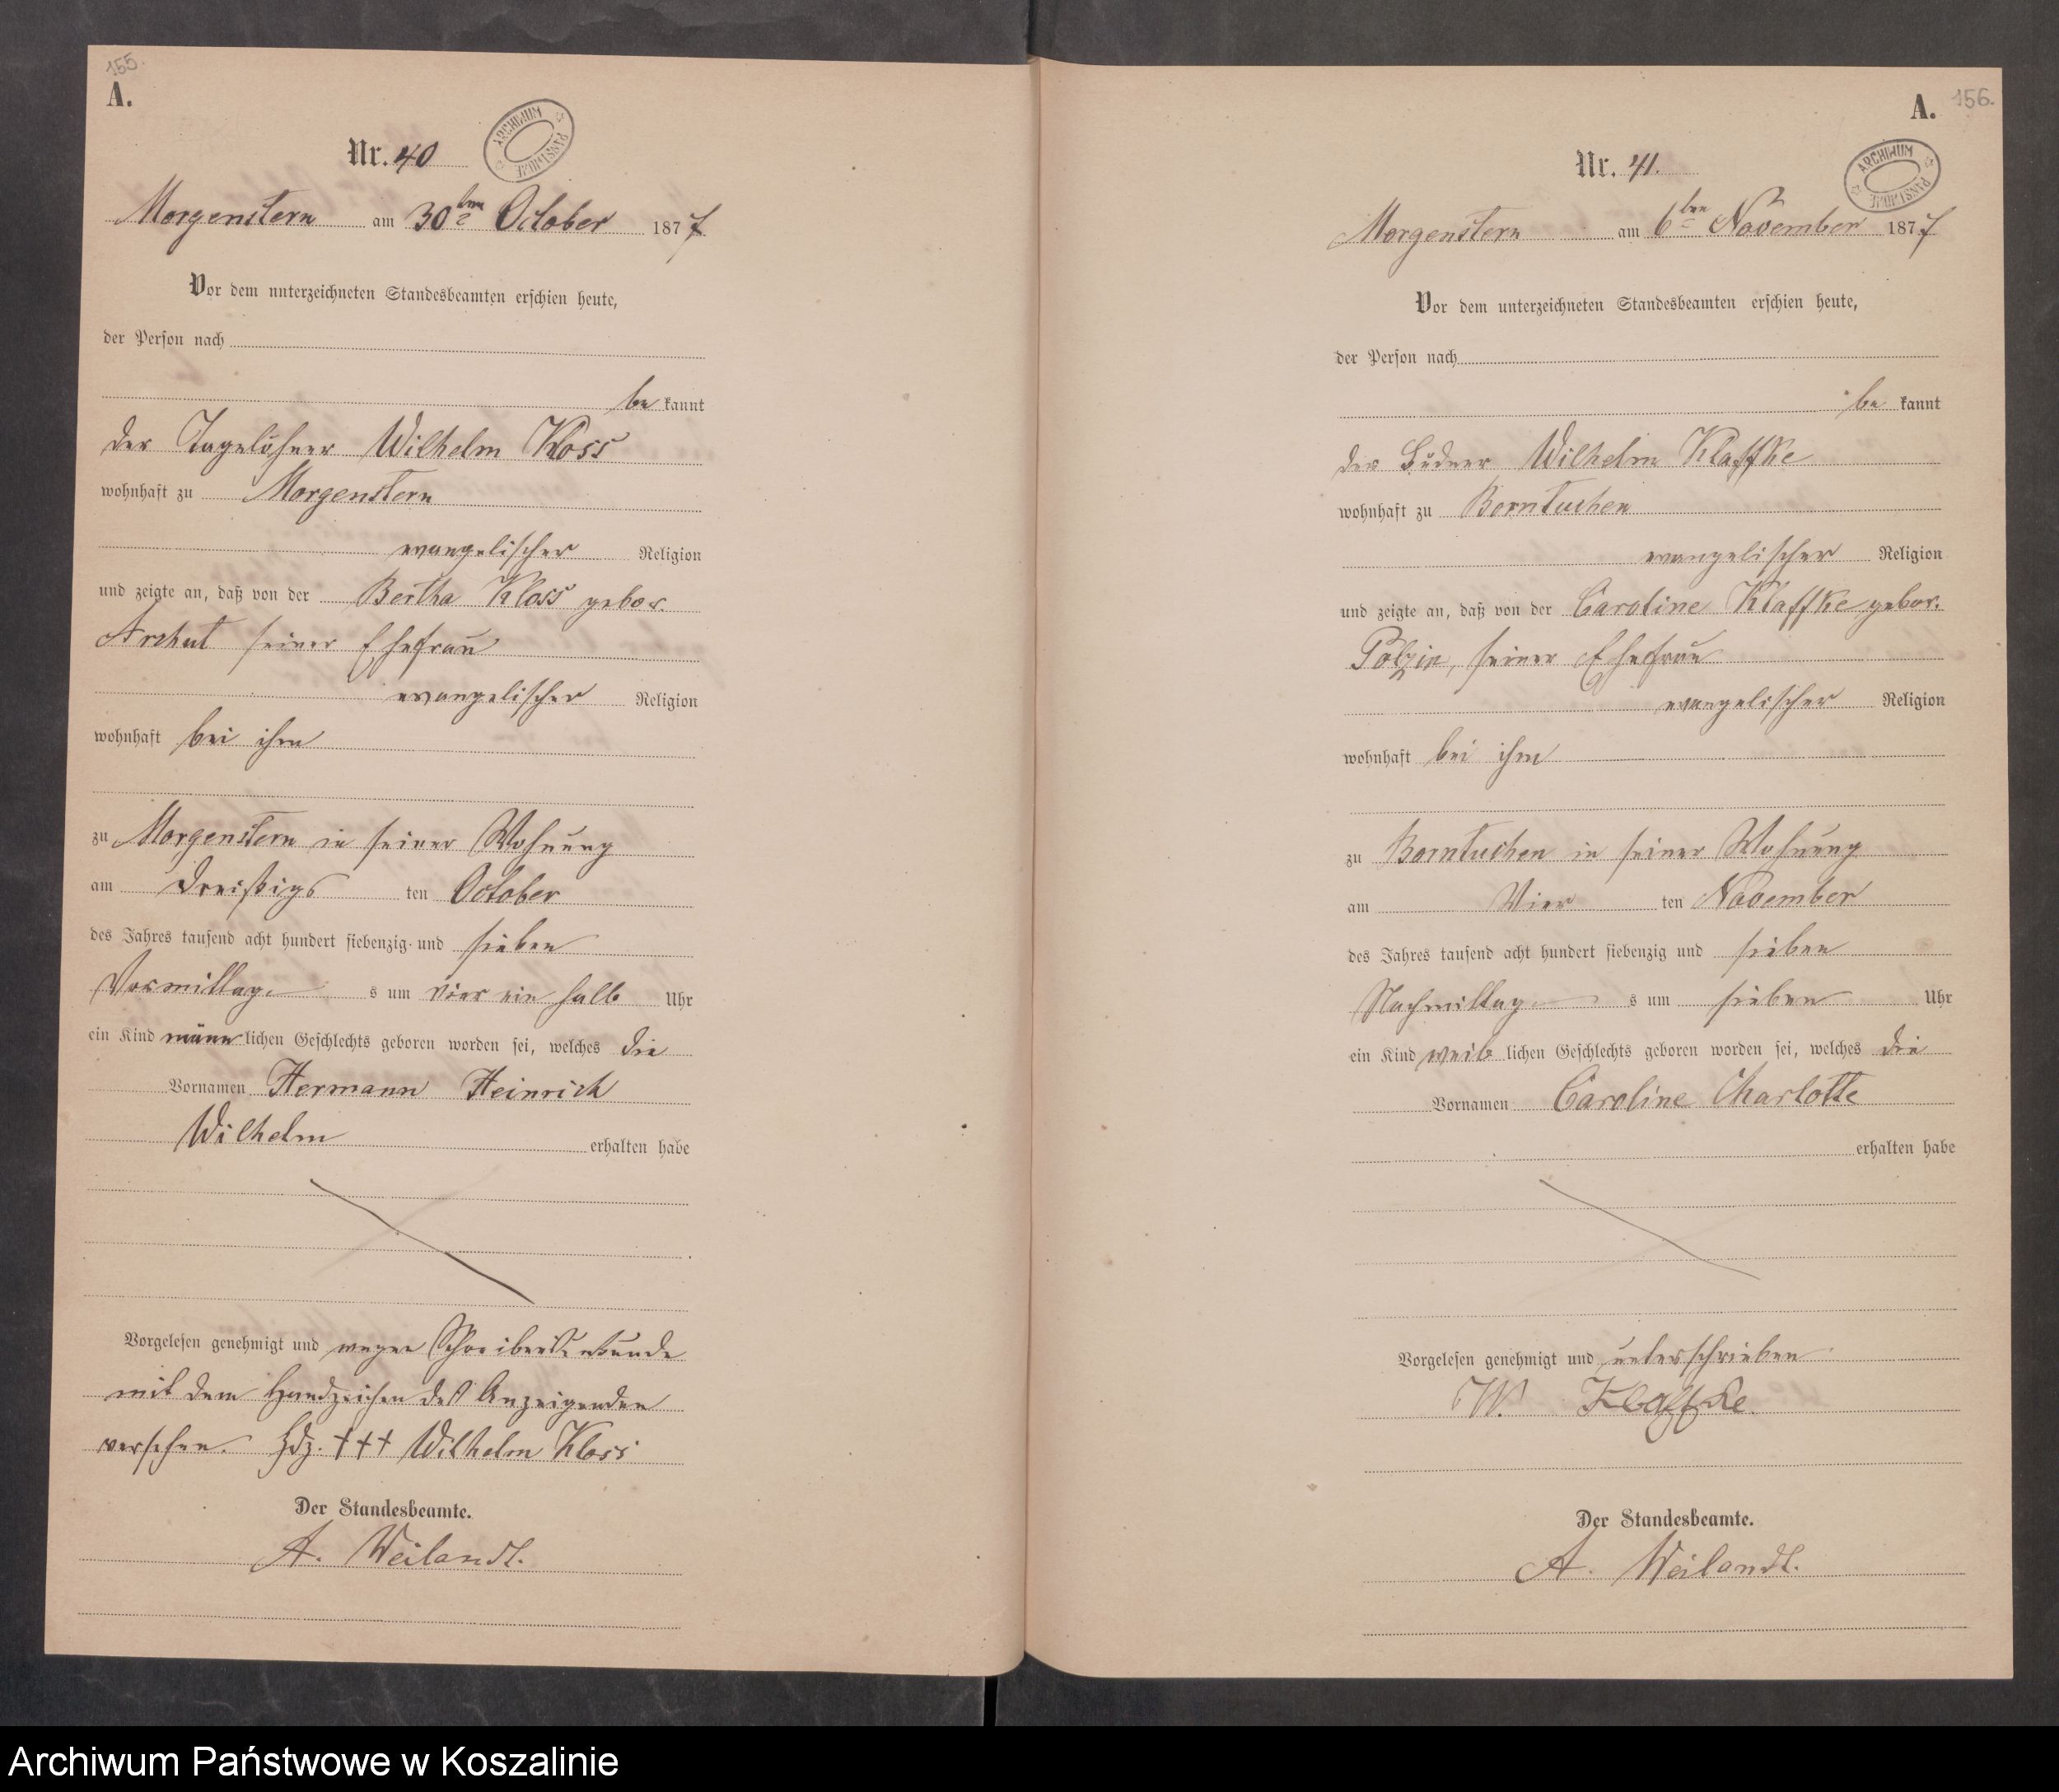 155.
A.
ARCHIWUM PAŃSTWOWE
Nr. 40
Morgenstern am 30ten October 1877
Vor dem unterzeichneten Standesbeamten erschien heute,
der Person nach
be kannt
der Tagelöhner Wilhelm Kloss
wohnhaft zu Morgenstern
evangelischer Religion
und zeigte an, daß von der Bertha Kloss gebor.
seiner Ehefrau
evangelischer Religion
wohnhaft bei ihm
zu Morgenstern in seiner Wohnung
am dreißigs ten October
des Jahres tausend acht hundert siebenzig und sieben
Vormittag s um vier ein halb Uhr
ein Kind männ lichen Geschlechts geboren worden sei, welches die
Vornamen Hermann Heinrich
Wilhelm erhalten habe
Vorgelesen genehmigt und wegen Schreibensunkunde
mit dem Handzeichen des Anzeigenden
versehen. Hdz. +++ Wilhelm Kloss
Der Standesbeamte.
A. Weilandt.
156.
A.
ARCHIWUM PAŃSTWOWE
Nr. 41.
Morgenstern am 6ten November 1877
Vor dem unterzeichneten Standesbeamten erschien heute,
der Person nach
be kannt
der Büdner Wilhelm Klaffke
wohnhaft zu Borntuchen
evangelischer Religion
und zeigte an, daß von der Caroline Klaffke gebor.
Polzin, seiner Ehefrau
evangelischer Religion
wohnhaft bei ihm
zu Borntuchen in seiner Wohnung
am Vier ten November
des Jahres tausend acht hundert siebenzig und sieben
Nachmittag s um sieben Uhr
ein Kind weib lichen Geschlechts geboren worden sei, welches die
Vornamen Caroline Charlotte
erhalten habe
Vorgelesen genehmigt und unterschrieben
W. Klaffke.
Der Standesbeamte.
A. Weilandt.
Archiwum Państwowe w Koszalinie